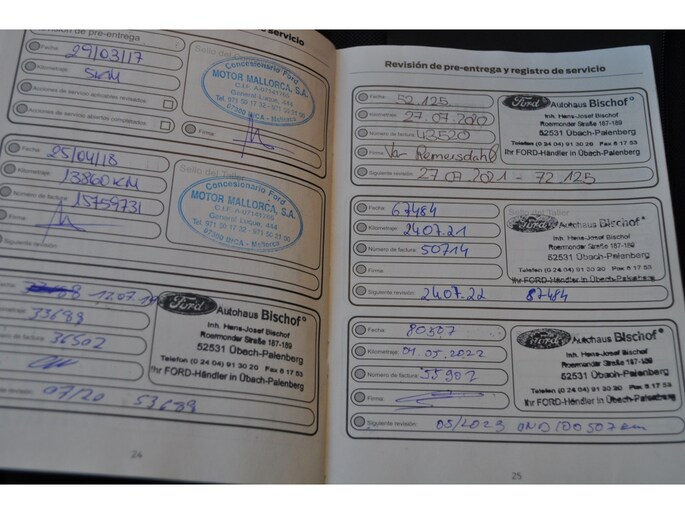 Revisión de pre-entrega
Fecha: 29/03/17
Kilometraje: 5KM
Acciones de servicio aplicables revisadas
Acciones de servicio abiertas completadas
Firma
Concesionario Ford
MOTOR MALLORCA, S.A.
General Luque, 444
07300 INCA - Mallorca
Fecha: 25/04/18
Kilometraje: 13860KM
Número de factura: 15759731
Firma:
Siguiente revisión:
Concesionario Ford
MOTOR MALLORCA, S.A.
General Luque, 444
INCA - Mallorca
12.07.
33689
36502
07/20 53689
Ford Autohaus Bischof
Inh. Hans-Josef Bischof
Roermonder Straße 187-189
52531 Übach-Palenberg
Telefon (0 24 04) 91 30 20 Fax 8 17 53
Ihr FORD-Händler in Übach-Palenberg
24
Revisión de pre-entrega y registro de servicio
Fecha: 52.125
Kilometraje: 27.07.2020
Número de factura: 43520
Firma:
Siguiente revisión: 27.07.2021 - 72.125
Ford Autohaus Bischof
Inh. Hans-Josef Bischof
Roermonder Straße 187-189
52531 Übach-Palenberg
Telefon (0 24 04) 91 30 20 Fax 8 17 53
Ihr FORD-Händler in Übach-Palenberg
Fecha: 67484
Kilometraje: 24.07.21
Número de factura: 50714
Firma:
Siguiente revisión: 24.07.22 87484
Ford Autohaus Bischof
Inh. Hans-Josef Bischof
Roermonder Straße 187-189
52531 Übach-Palenberg
Telefon (0 24 04) 91 30 20 Fax 8 17 53
Ihr FORD-Händler in Übach-Palenberg
Fecha: 80507
Kilometraje: 01.05.2022
Número de factura: 55902
Firma:
Siguiente revisión: 05/2023 UND 100507 km
Ford Autohaus Bischof
Inh. Hans-Josef Bischof
Roermonder Straße 187-189
52531 Übach-Palenberg
Telefon (0 24 04) 91 30 20 Fax 8 17 53
Ihr FORD-Händler in Übach-Palenberg
25